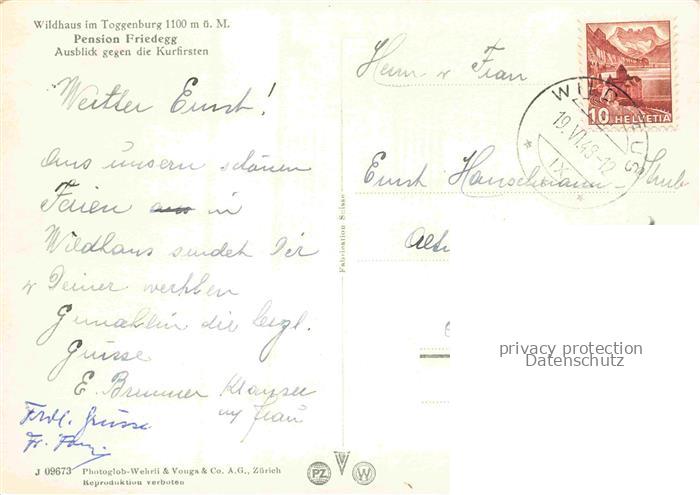 Wildhaus im Toggenburg 1100 m ü. M.
Pension Friedegg
Ausblick gegen die Kurfirsten
Werther Ernst!
Aus unsern schönen
Ferien aus in
Wildhaus sendet Dir
u Deiner werthen
Gemahlin die herzl.
Grüsse
E. Brunner
u Frau
Frdl. Grüsse
Fr.
J 09673 Photoglob-Wehrli & Vouga & Co. A.G., Zürich
Reproduktion verboten
Fabrication Suisse
PZ W
Herrn u Frau
Ernst
10 HELVETIA
WILDHAUS
19.VI.48-12
IX
privacy protection
Datenschutz